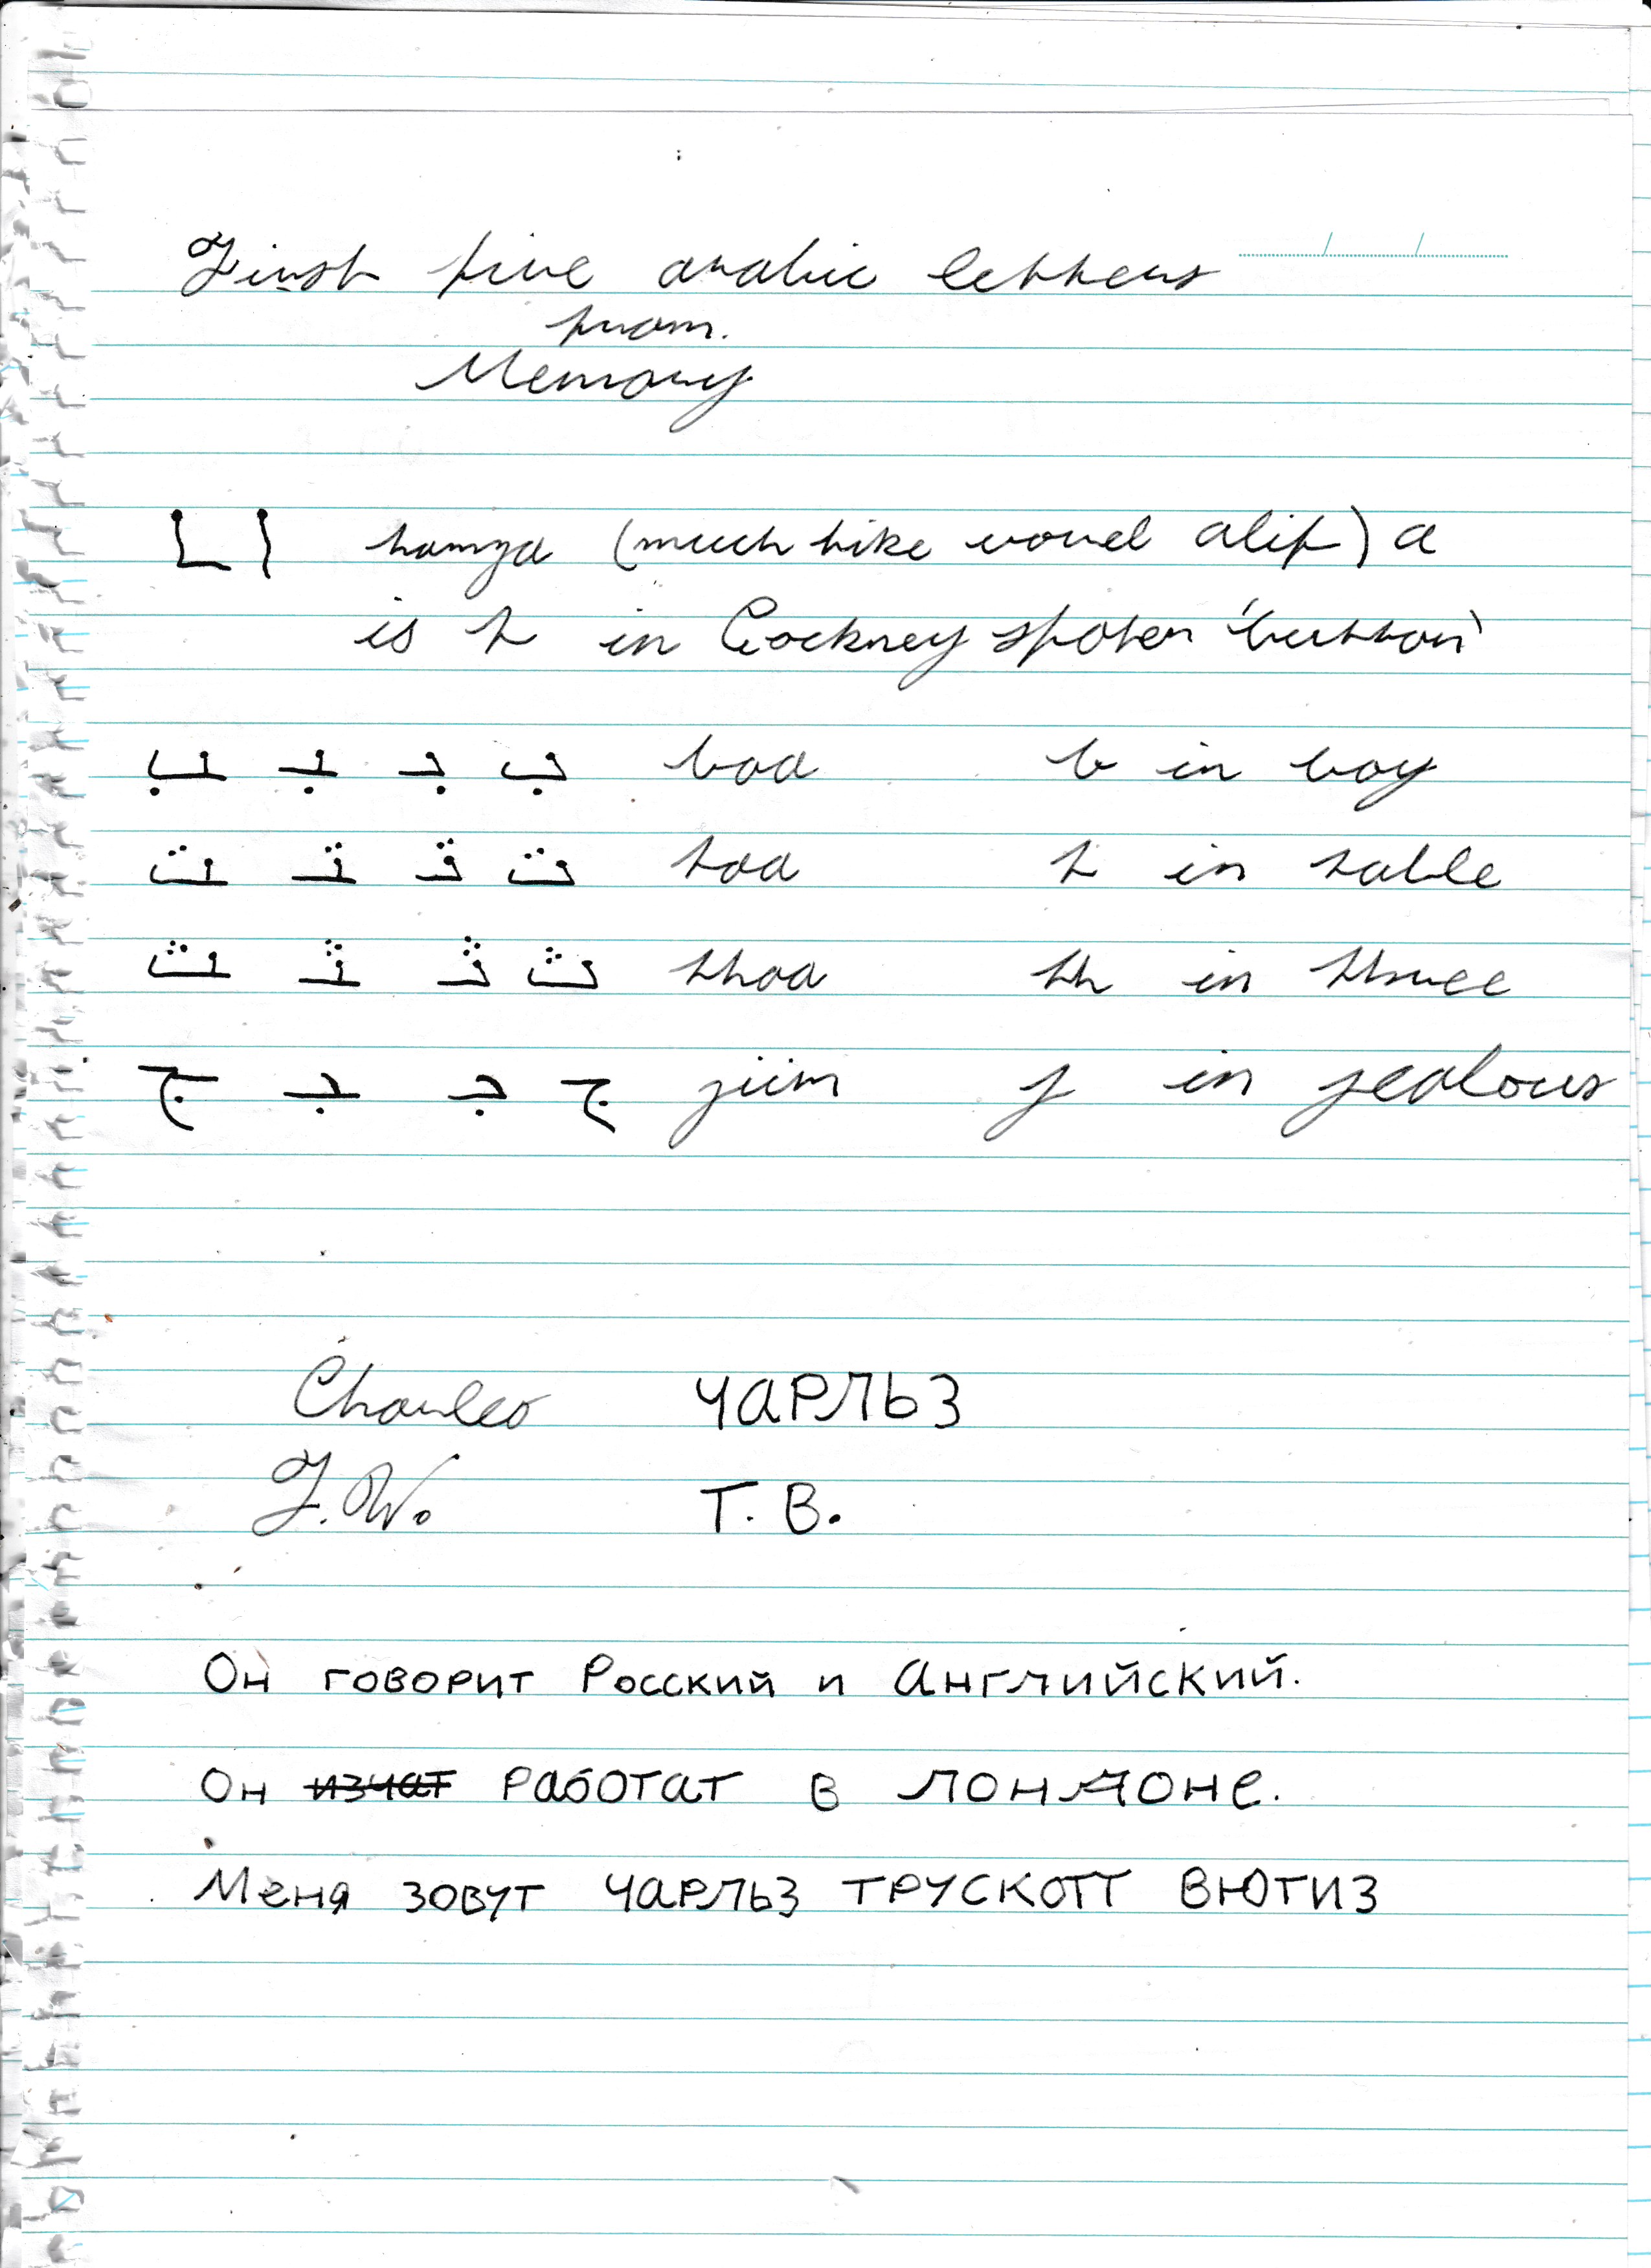 First five arabic letters
from.
Memory
ـا ا hamza (much like vowel alif) a
is t in Cockney spoken 'button'
ـب ـبـ بـ ب baa b in boy
ـت ـتـ تـ ت taa t in table
ـث ـثـ ثـ ث thaa th in three
ـج ـجـ جـ ج jiim j in jealous
Charles ЧАРЛЬЗ
T.W. Т.В.
Он говорит Росский и Английский.
Он изчат работат в Лондоне.
Меня зовут ЧАРЛЬЗ ТРУСКОТТ ВЮТИЗ